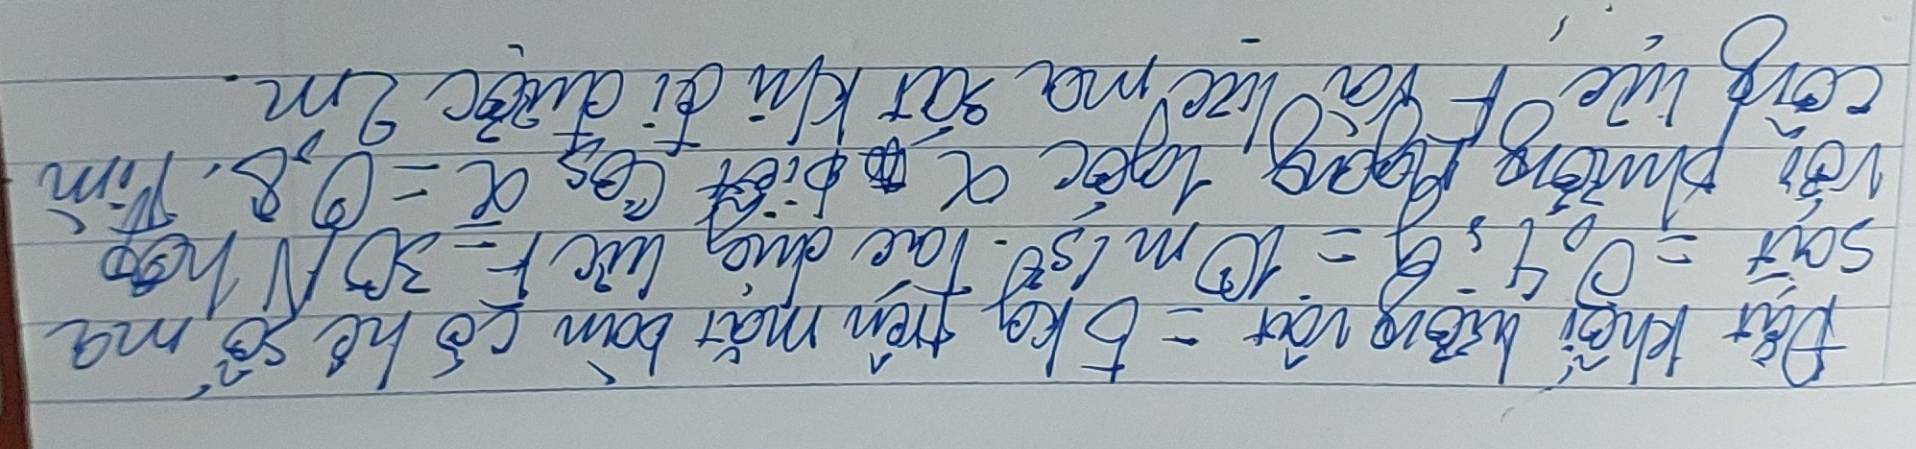 Đặt khối lượng vật = 5kg trên mặt bàn có hệ số ma
sát = 0,4, g = 10 m/s². Tác dụng lực F = 30 N hợp
với phương ngang 1 góc α biết Cos α = 0,8. Tìm
công lực F và lực ma sát khi đi được 2m.